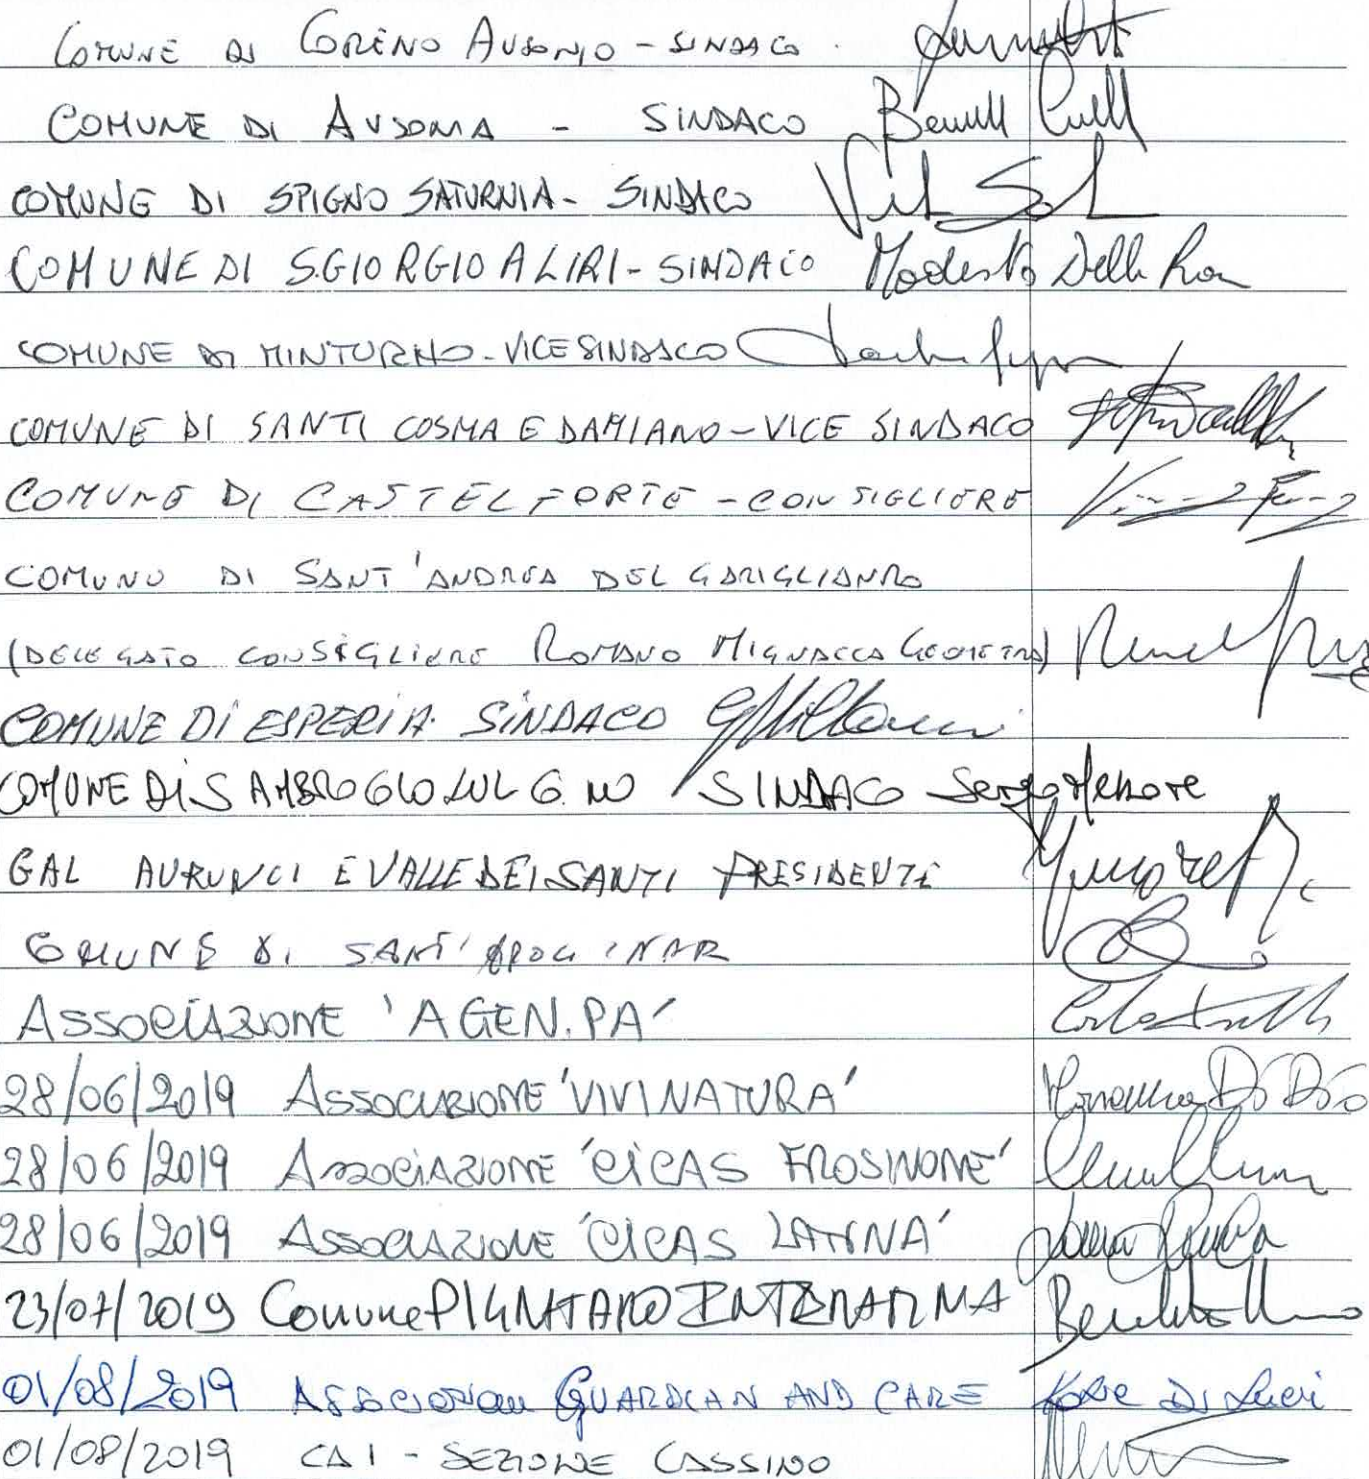 COMUNE DI CORENO AUSONIO - SINDACO
COMUNE DI AUSONIA - SINDACO
COMUNE DI SPIGNO SATURNIA - SINDACO
COMUNE DI S.GIORGIO A LIRI - SINDACO Modesto Della Rosa
COMUNE DI MINTURNO - VICESINDACO
COMUNE DI SANTI COSMA E DAMIANO - VICE SINDACO
COMUNE DI CASTELFORTE - CONSIGLIERE
COMUNE DI SANT'ANDREA DEL GARIGLIANO
(DELEGATO CONSIGLIERE ROMANO MIGNACCA GEOMETRA)
COMUNE DI ESPERIA SINDACO
COMUNE DI S AMBROGIO SUL G.NO SINDACO Sergio Messore
GAL AURUNCI E VALLE DEI SANTI PRESIDENTE
COMUNE DI SANT'APOLLINAR
ASSOCIAZIONE 'AGEN.PA'
28/06/2019 ASSOCIAZIONE 'VIVINATURA' Di Dio
28/06/2019 ASSOCIAZIONE 'CICAS FROSINONE'
28/06/2019 ASSOCIAZIONE 'CICAS LATINA'
23/07/2019 Comune PIGNATARO INTERAMNA
01/08/2019 ASSOCIAZIONE GUARDIAN AND CARE
01/08/2019 CAI - SEZIONE CASSINO